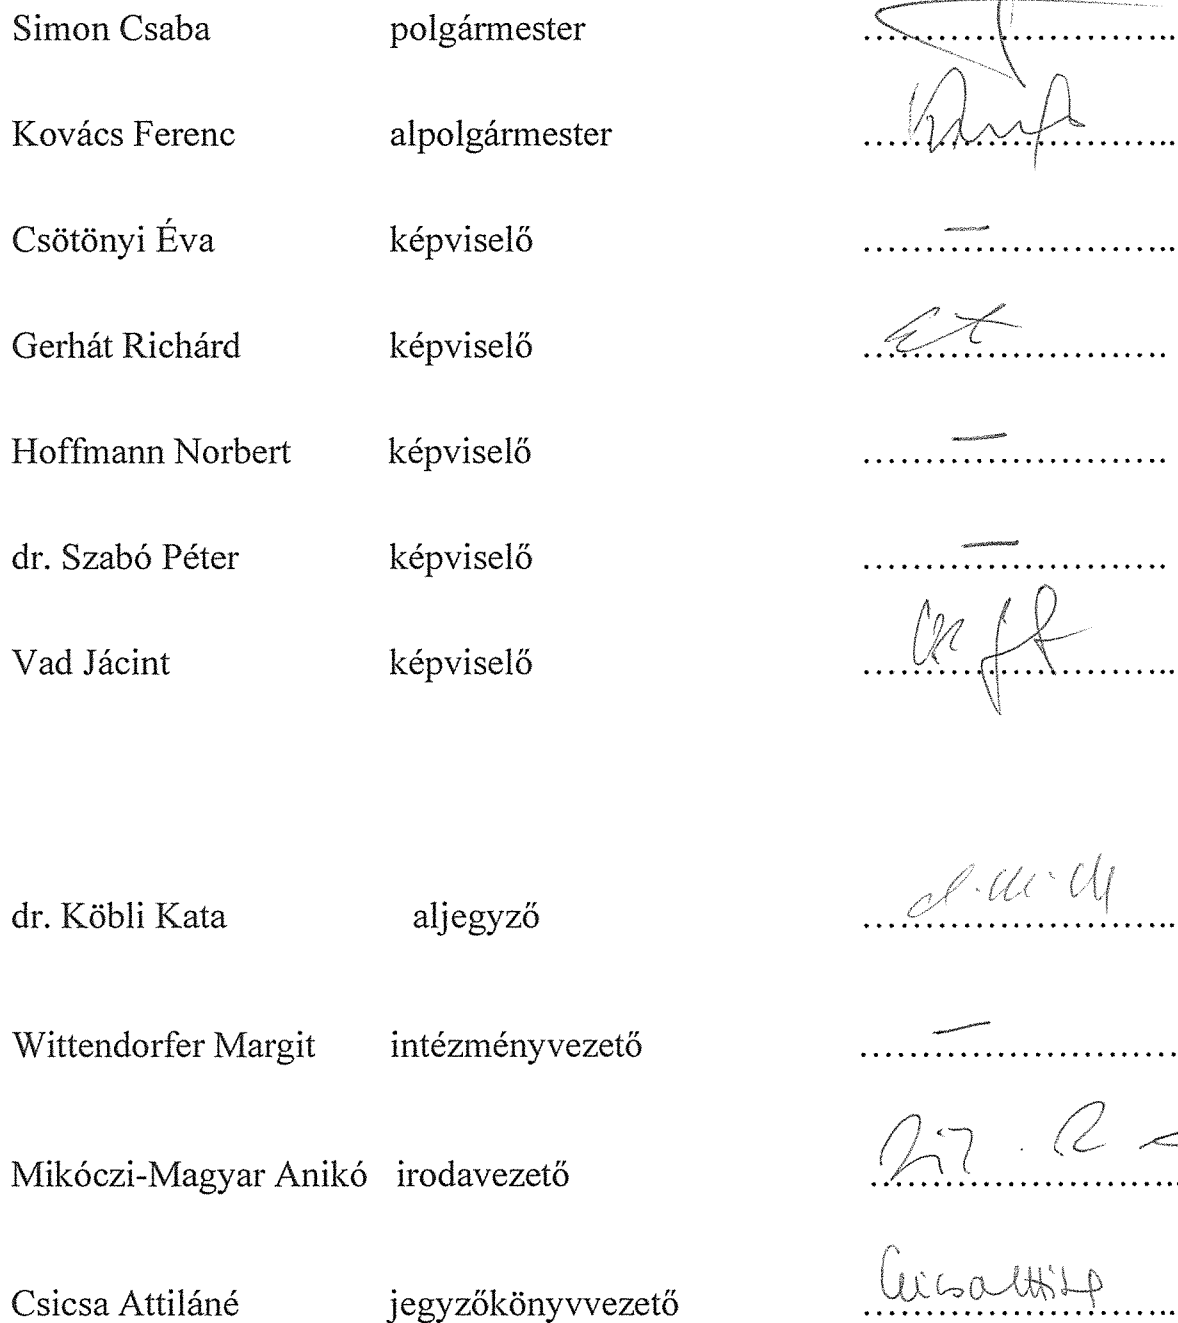 Simon Csaba polgármester ............................
Kovács Ferenc alpolgármester ............................
Csötönyi Éva képviselő ............................ –
Gerhát Richárd képviselő ............................
Hoffmann Norbert képviselő ............................ –
dr. Szabó Péter képviselő ............................ –
Vad Jácint képviselő ............................
dr. Köbli Kata aljegyző ............................
Wittendorfer Margit intézményvezető ............................ –
Mikóczi-Magyar Anikó irodavezető ............................
Csicsa Attiláné jegyzőkönyvvezető ............................